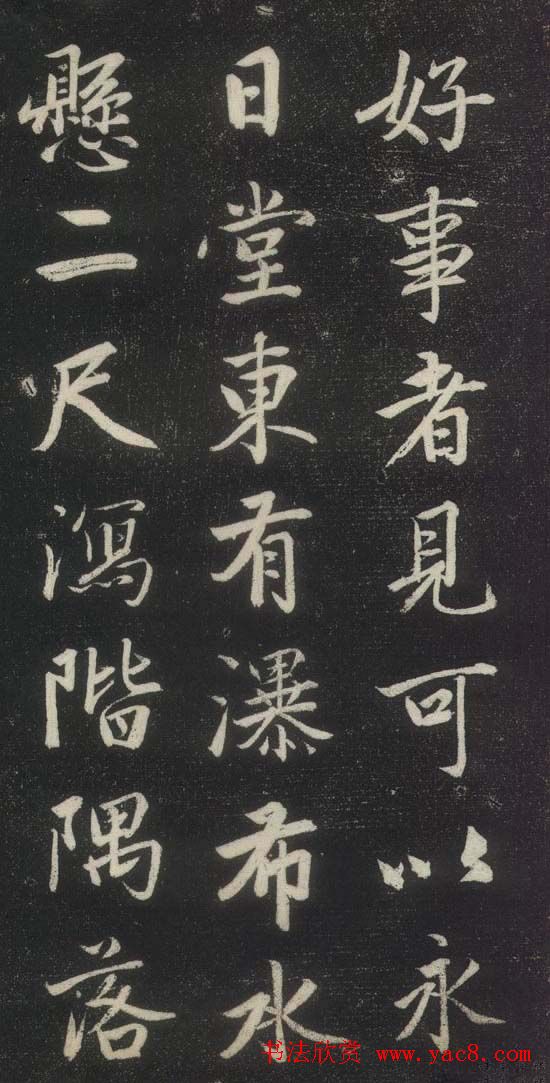 好事者見可以永
日堂東有瀑布水
懸二尺瀉階隅落
书法欣赏 www.yac8.com